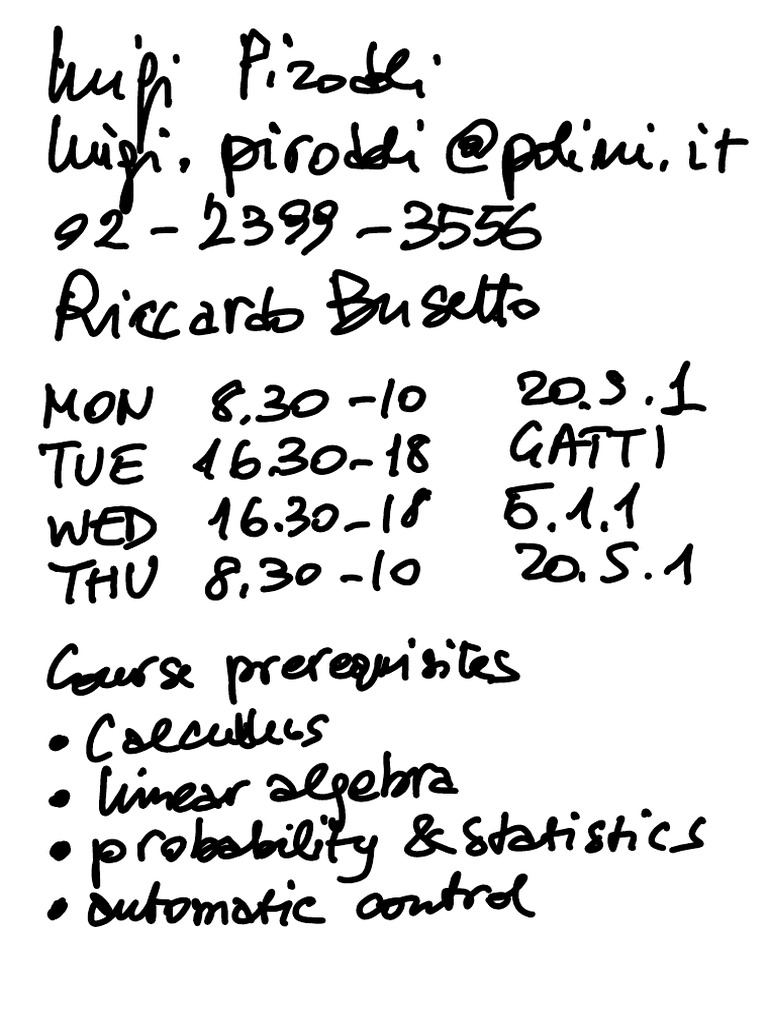 Luigi Piroddi
luigi.piroddi@polimi.it
02-2399-3556
Riccardo Busetto
MON 8.30-10 20.S.1
TUE 16.30-18 GATTI
WED 16.30-18 5.1.1
THU 8.30-10 20.S.1
Course prerequisites
• Calculus
• linear algebra
• probability & statistics
• automatic control